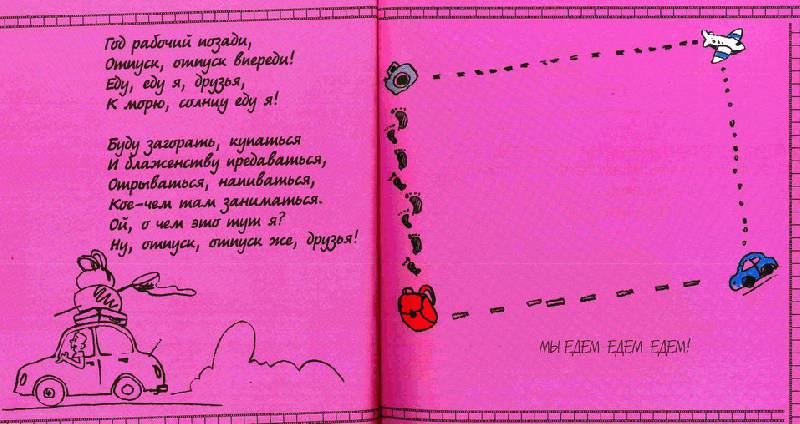 Год рабочий позади,
Отпуск, отпуск впереди!
Еду, еду я, друзья,
К морю, солнцу еду я!
Буду загорать, купаться
И блаженству предаваться,
Отрываться, напиваться,
Кое-чем там заниматься.
Ой, о чем это тут я?
Ну, отпуск, отпуск же, друзья!
МЫ ЕДЕМ ЕДЕМ ЕДЕМ!